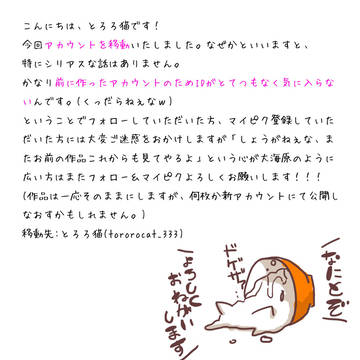 こんにちは、とろろ猫です！
今回アカウントを移動いたしました。なぜかといいますと、
特にシリアスな話はありません。
かなり前に作ったアカウントのためIDがとてつもなく気に入らな
いんです。(くっだらねぇなｗ)
ということでフォローしていただいた方、マイピク登録していた
だいた方には大変ご迷惑をおかけしますが「しょうがねぇな、ま
たお前の作品これからも見てやるよ」という心が大海原のように
広い方はまたフォロー＆マイピクよろしくお願いします！！！
(作品は一応そのままにしますが、何枚か新アカウントにて公開し
なおすかもしれません。)
移動先：とろろ猫(tororocat_333)
なにとぞ
ドゲザ
よろしく
おねがい
します